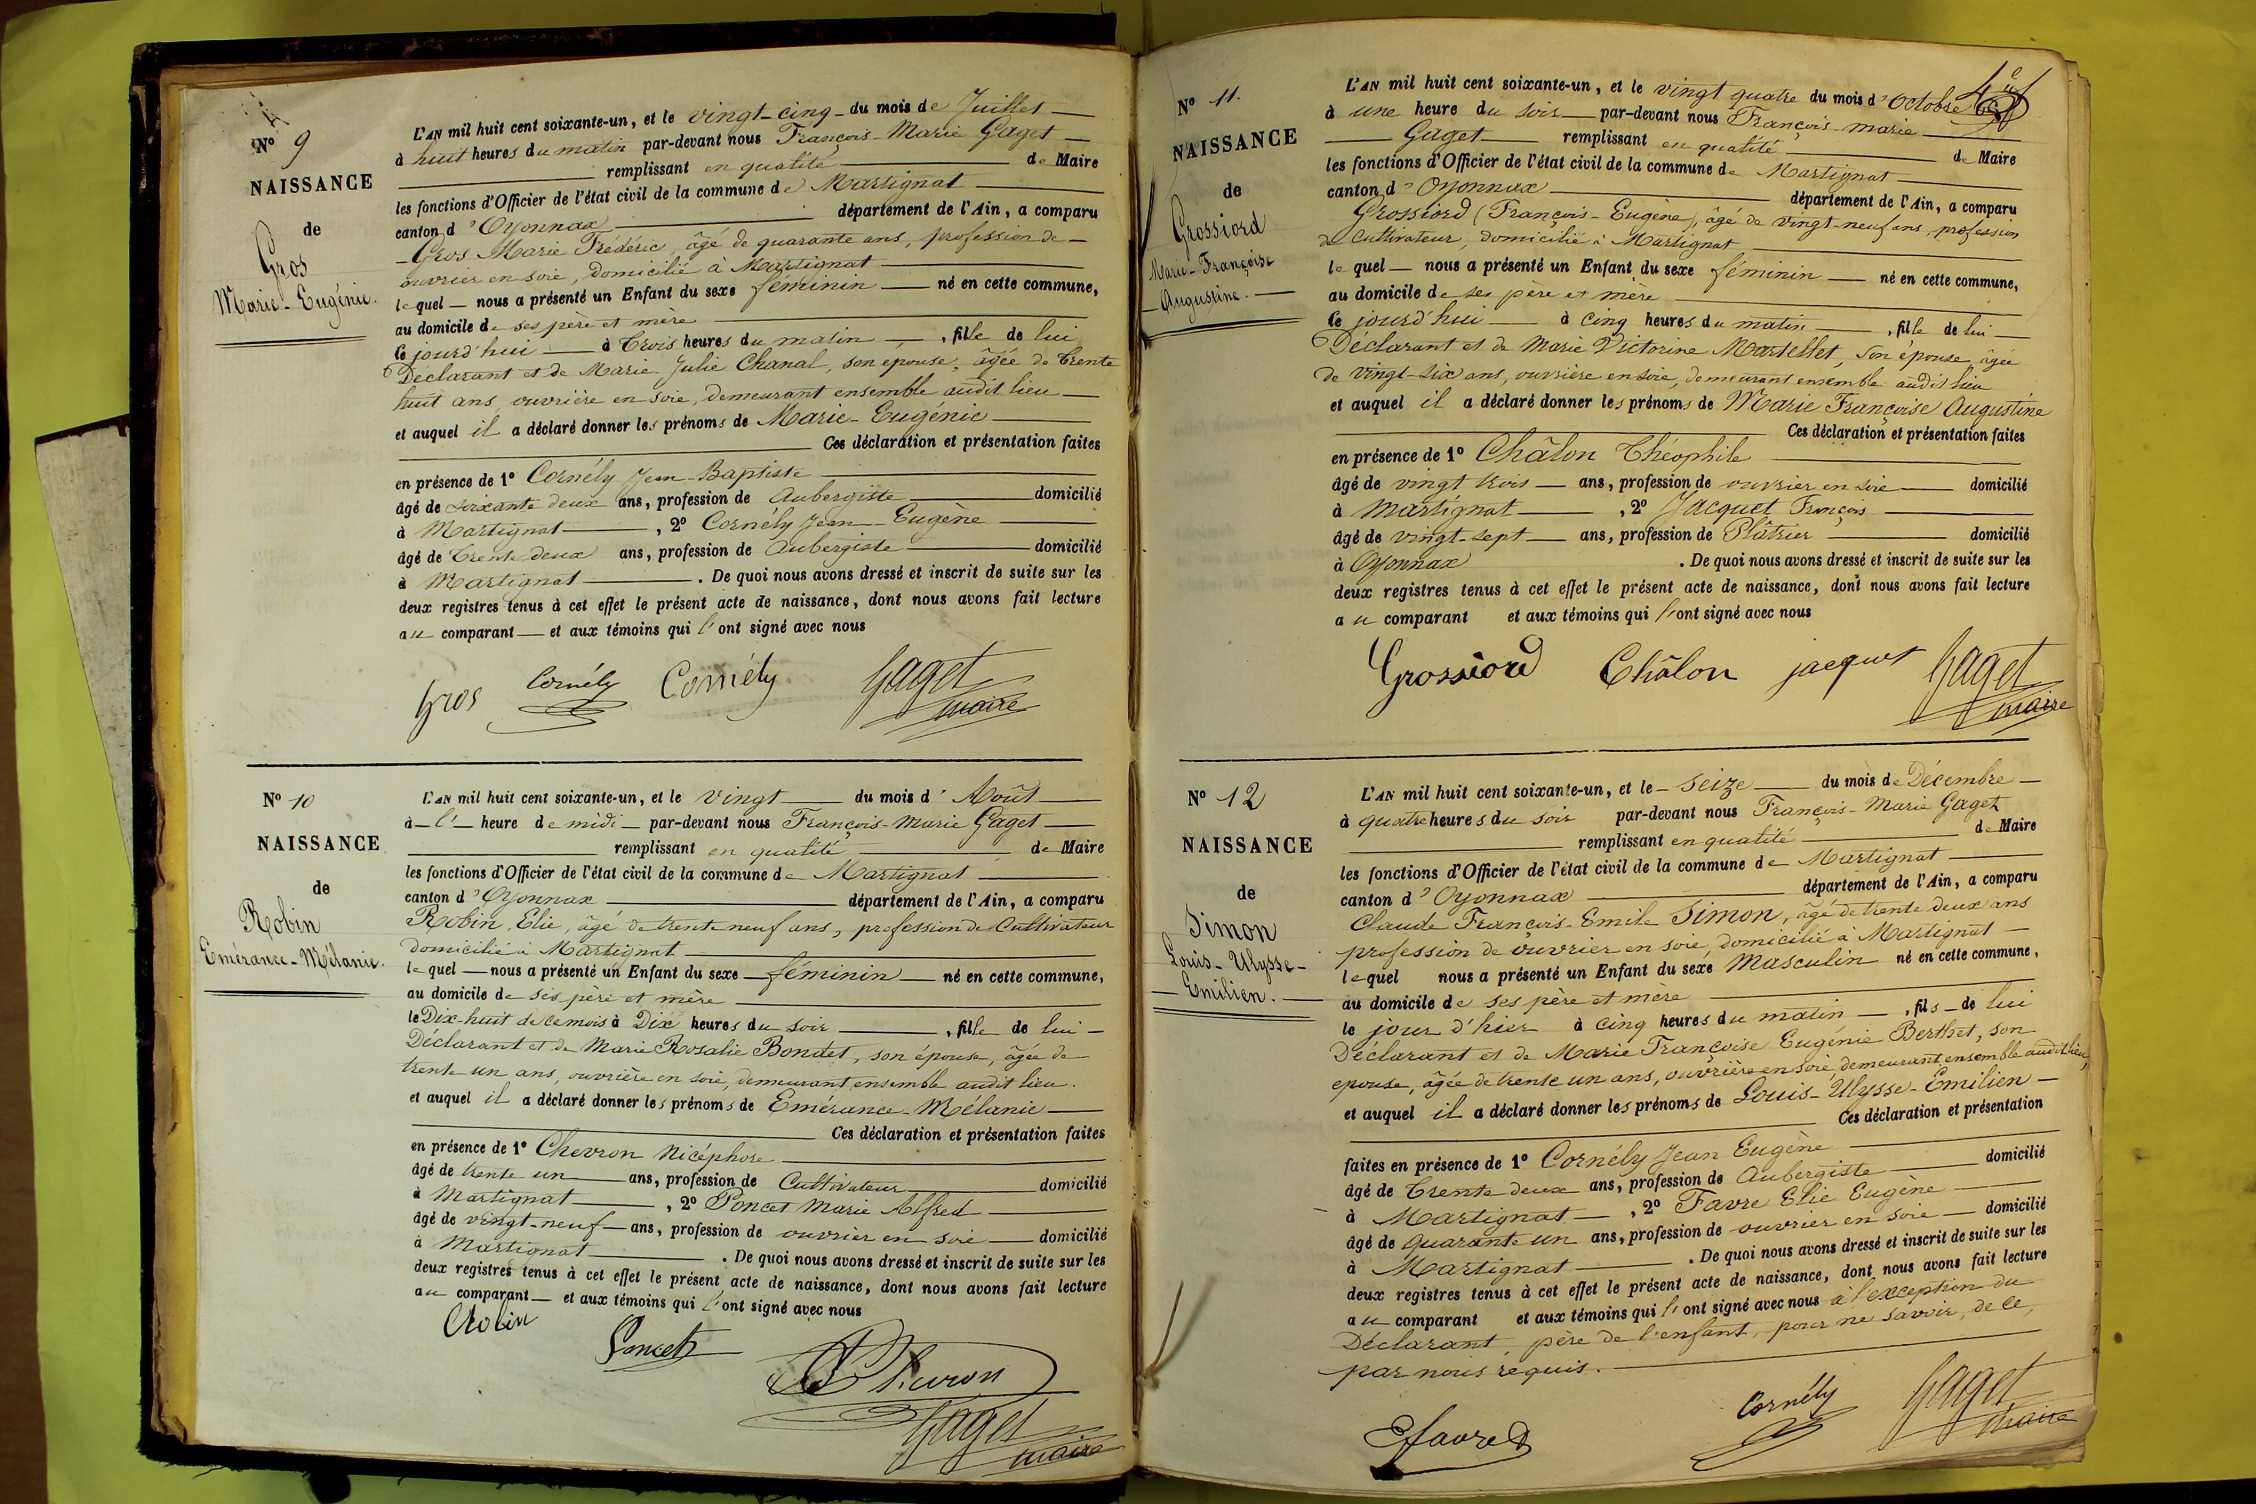 Nº 9
NAISSANCE
de
Gros
Marie-Eugénie.
L'AN mil huit cent soixante-un, et le vingt-cinq du mois de Juillet
à huit heures du matin par-devant nous François-Marie Gaget
remplissant en qualité de Maire
les fonctions d'Officier de l'état civil de la commune de Martignat
canton d'Oyonnax département de l'Ain, a comparu
Gros Marie Frédéric, âgé de quarante ans, profession de
ouvrier en soie, domicilié à Martignat
lequel nous a présenté un Enfant du sexe féminin né en cette commune,
au domicile de ses père et mère
Ce jourd'hui à trois heures du matin, fille de lui
Déclarant et de Marie Julie Chanal, son epouse, âgée de trente
huit ans, ouvrière en soie, demeurant ensemble audit lieu
et auquel il a déclaré donner les prénoms de Marie-Eugénie
Ces déclaration et présentation faites
en présence de 1º Cornély Jean-Baptiste
âgé de soixante deux ans, profession de Aubergiste domicilié
à Martignat, 2º Cornély Jean-Eugène
âgé de trente deux ans, profession de Aubergiste domicilié
à Martignat. De quoi nous avons dressé et inscrit de suite sur les
deux registres tenus à cet effet le présent acte de naissance, dont nous avons fait lecture
au comparant et aux témoins qui l'ont signé avec nous
Gros Cornély Cornély Gaget
maire
Nº 10
NAISSANCE
de
Robin
Emérance-Mélanie.
L'AN mil huit cent soixante-un, et le vingt du mois d'Août
à l' heure de midi par-devant nous François-Marie Gaget
remplissant en qualité de Maire
les fonctions d'Officier de l'état civil de la commune de Martignat
canton d'Oyonnax département de l'Ain, a comparu
Robin Elie, âgé de trente neuf ans, profession de Cultivateur
domicilié à Martignat
lequel nous a présenté un Enfant du sexe féminin né en cette commune,
au domicile de ses père et mère
le Dix-huit de ce mois à Dix heures du soir, fille de lui
Déclarant et de Marie Rosalie Bondet, son épouse, âgée de
trente un ans, ouvrière en soie, demeurant ensemble audit lieu.
et auquel il a déclaré donner les prénoms de Emérance-Mélanie
Ces déclaration et présentation faites
en présence de 1º Chevron Nicéphore
âgé de trente un ans, profession de Cultivateur domicilié
à Martignat, 2º Poncet Marie Alfred
âgé de vingt-neuf ans, profession de ouvrier en soie domicilié
à Martignat. De quoi nous avons dressé et inscrit de suite sur les
deux registres tenus à cet effet le présent acte de naissance, dont nous avons fait lecture
au comparant et aux témoins qui l'ont signé avec nous
Robin
Poncet
Chevron
Gaget
maire
Nº 11.
NAISSANCE
de
Grossiord
Marie-Françoise
Augustine.
L'AN mil huit cent soixante-un, et le vingt quatre du mois d'Octobre
à une heure du soir par-devant nous François-Marie
Gaget remplissant en qualité de Maire
les fonctions d'Officier de l'état civil de la commune de Martignat
canton d'Oyonnax département de l'Ain, a comparu
Grossiord (François-Eugène), âgé de vingt-neuf ans, profession
de cultivateur, domicilié à Martignat
lequel nous a présenté un Enfant du sexe féminin né en cette commune,
au domicile de ses père et mère
Ce jourd'hui à cinq heures du matin, fille de lui
Déclarant et de Marie Victorine Martellet, son épouse, âgée
de vingt-six ans, ouvrière en soie, demeurant ensemble audit lieu
et auquel il a déclaré donner les prénoms de Marie Françoise Augustine
Ces déclaration et présentation faites
en présence de 1º Châlon Théophile
âgé de vingt trois ans, profession de ouvrier en soie domicilié
à Martignat, 2º Jacquet François
âgé de vingt-sept ans, profession de Plâtrier domicilié
à Oyonnax. De quoi nous avons dressé et inscrit de suite sur les
deux registres tenus à cet effet le présent acte de naissance, dont nous avons fait lecture
au comparant et aux témoins qui l'ont signé avec nous
Grossiord Châlon jacquet Gaget
maire
Nº 12
NAISSANCE
de
Simon
Louis-Ulysse-
Emilien.
L'AN mil huit cent soixante-un, et le seize du mois de Décembre
à quatre heures du soir par-devant nous François-Marie Gaget
remplissant en qualité de Maire
les fonctions d'Officier de l'état civil de la commune de Martignat
canton d'Oyonnax département de l'Ain, a comparu
Claude François-Emile Simon, âgé de trente deux ans
profession de ouvrier en soie, domicilié à Martignat
lequel nous a présenté un Enfant du sexe Masculin né en cette commune,
au domicile de ses père et mère
le jour d'hier à cinq heures du matin, fils de lui
Déclarant et de Marie Françoise Eugénie Berthet, son
epouse, âgée de trente un ans, ouvrière en soie, demeurant ensemble audit lieu,
et auquel il a déclaré donner les prénoms de Louis-Ulysse-Emilien
Ces déclaration et présentation
faites en présence de 1º Cornély Jean Eugène
âgé de trente deux ans, profession de Aubergiste domicilié
à Martignat, 2º Favre Elie Eugène
âgé de quarante un ans, profession de ouvrier en soie domicilié
à Martignat. De quoi nous avons dressé et inscrit de suite sur les
deux registres tenus à cet effet le présent acte de naissance, dont nous avons fait lecture
au comparant et aux témoins qui l'ont signé avec nous à l'exception du
Déclarant, père de l'enfant, pour ne savoir, de ce,
par nous requis.
Efavre Cornély Gaget
Maire